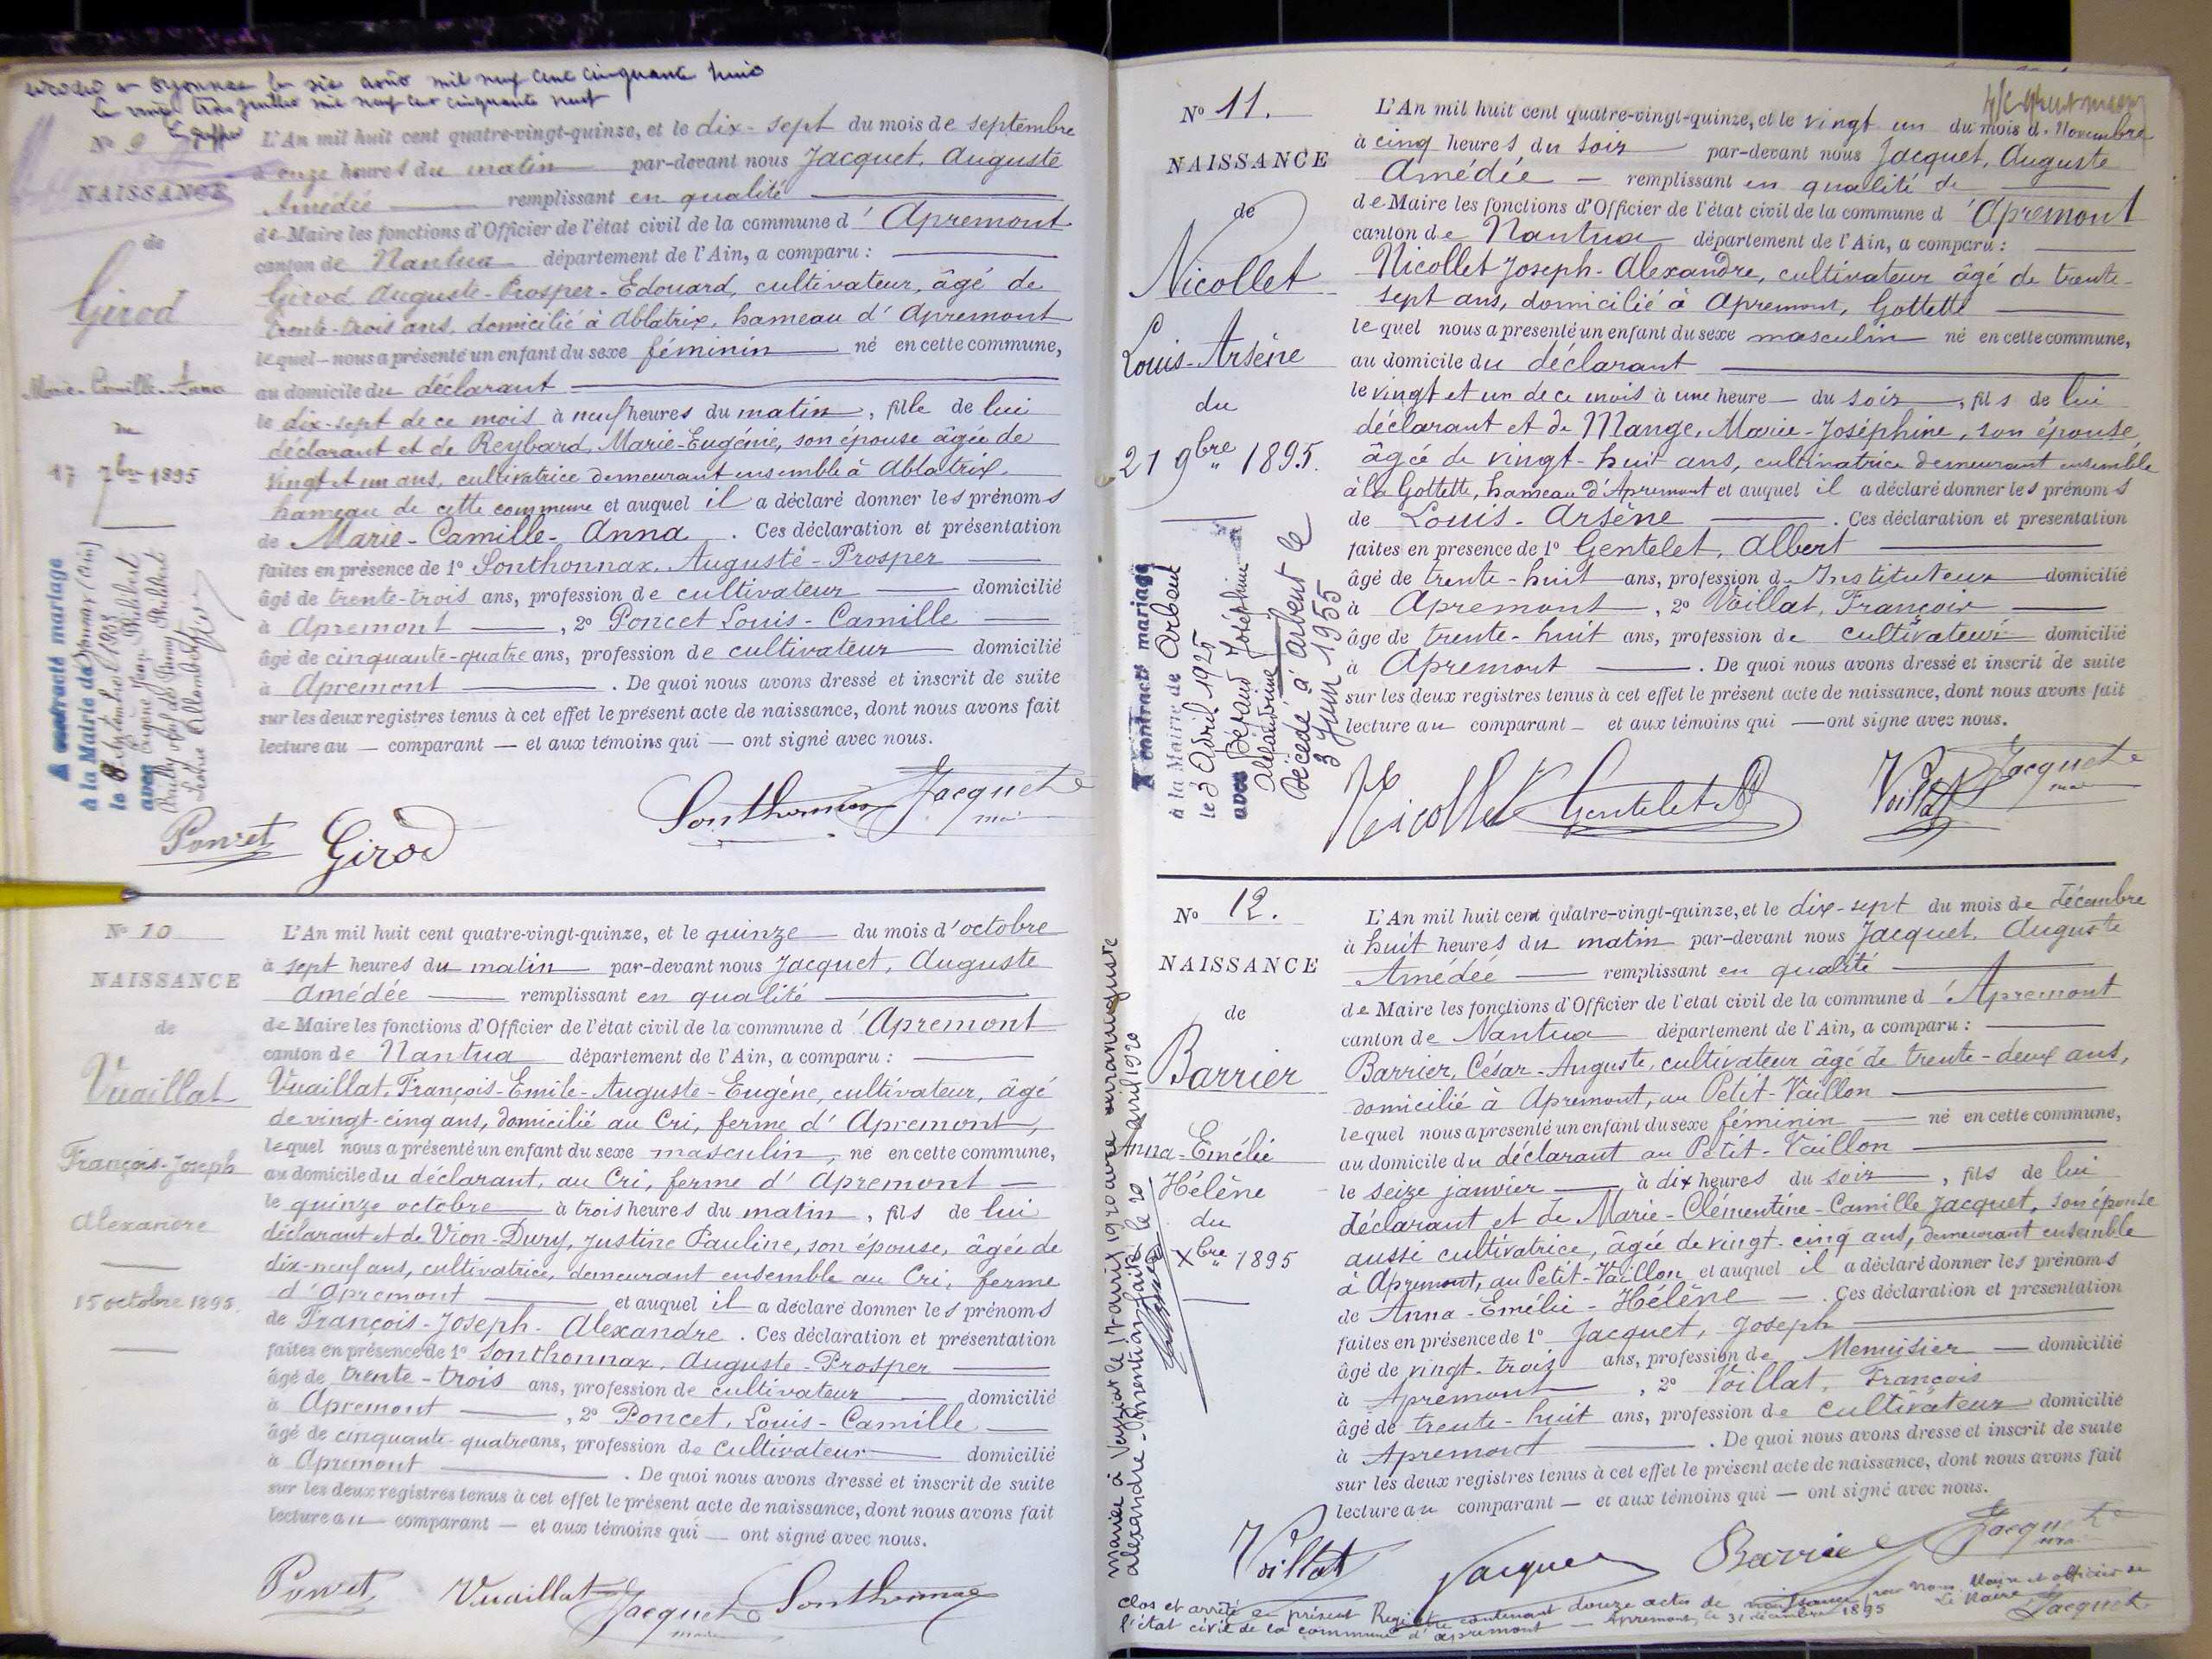 Oyonnax le six mil neuf cent cinquante huit
le vingt trois juillet mil neuf cent cinquante huit
Le greffier
N° 9
NAISSANCE
de
Girod
Marie-Camille-Anna
du
17 7bre 1895
A contracté mariage
à la Mairie de Dunay (Ain)
le 8 1905
avec Eugène Jean Philibert
L'An mil huit cent quatre-vingt-quinze, et le dix-sept du mois de septembre
à onze heures du matin par-devant nous Jacquet, Auguste
Amédée remplissant en qualité
de Maire les fonctions d'Officier de l'état civil de la commune d'Apremont
canton de Nantua département de l'Ain, a comparu :
Girod Auguste-Prosper-Edouard, cultivateur, âgé de
trente-trois ans, domicilié à Ablatrix, hameau d'Apremont
lequel nous a présenté un enfant du sexe féminin né en cette commune,
au domicile du déclarant
le dix-sept de ce mois à neuf heures du matin, fille de lui
déclarant et de Reybard, Marie-Eugénie, son épouse âgée de
vingt et un ans, cultivatrice demeurant ensemble à Ablatrix
hameau de cette commune et auquel il a déclaré donner les prénoms
de Marie-Camille-Anna . Ces déclaration et présentation
faites en présence de 1° Sonthonnax, Auguste-Prosper
âgé de trente-trois ans, profession de cultivateur domicilié
à Apremont , 2° Poncet Louis-Camille
âgé de cinquante-quatre ans, profession de cultivateur domicilié
à Apremont . De quoi nous avons dressé et inscrit de suite
sur les deux registres tenus à cet effet le présent acte de naissance, dont nous avons fait
lecture au — comparant — et aux témoins qui — ont signé avec nous.
Sonthonnax Jacquet
maire
Poncet Girod
N° 10
NAISSANCE
de
Vuaillat
François-Joseph
Alexandre
15 octobre 1895.
L'An mil huit cent quatre-vingt-quinze, et le quinze du mois d'octobre
à sept heures du matin par-devant nous Jacquet, Auguste
Amédée remplissant en qualité
de Maire les fonctions d'Officier de l'état civil de la commune d'Apremont
canton de Nantua département de l'Ain, a comparu :
Vuaillat, François-Emile-Auguste-Eugène, cultivateur, âgé
de vingt-cinq ans, domicilié au Cri, ferme d'Apremont,
lequel nous a présenté un enfant du sexe masculin, né en cette commune,
au domicile du déclarant, au Cri, ferme d'Apremont —
le quinze octobre à trois heures du matin, fils de lui
déclarant et de Vion-Dury, Justine Pauline, son épouse, âgée de
dix-neuf ans, cultivatrice, demeurant ensemble au Cri, ferme
d'Apremont et auquel il a déclaré donner les prénoms
de François-Joseph-Alexandre . Ces déclaration et présentation
faites en présence de 1° Sonthonnax, Auguste-Prosper
âgé de trente-trois ans, profession de cultivateur domicilié
à Apremont , 2° Poncet, Louis-Camille
âgé de cinquante-quatre ans, profession de cultivateur domicilié
à Apremont . De quoi nous avons dressé et inscrit de suite
sur les deux registres tenus à cet effet le présent acte de naissance, dont nous avons fait
lecture au — comparant — et aux témoins qui — ont signé avec nous.
Poncet Vuaillat Jacquet Sonthonnax
maire
N° 11.
NAISSANCE
de
Nicollet
Louis-Arsène
du
21 9bre 1895.
A contracté mariage
à la Mairie de Arbent
le 3 Avril 1925
avec Béraud Joséphine
Alexandrine
Décédé à Arbent le
3 Juin 1955
L'An mil huit cent quatre-vingt-quinze, et le vingt un du mois d. Novembre
à cinq heures du soir par-devant nous Jacquet, Auguste
Amédée — remplissant en qualité de
de Maire les fonctions d'Officier de l'état civil de la commune d'Apremont
canton de Nantua département de l'Ain, a comparu :
Nicollet Joseph-Alexandre, cultivateur âgé de trente-
sept ans, domicilié à Apremont, Gottette
lequel nous a présenté un enfant du sexe masculin né en cette commune,
au domicile du déclarant
le vingt et un de ce mois à une heure — du soir, fils de lui
déclarant et de Mange, Marie-Joséphine, son épouse
âgée de vingt-huit ans, cultivatrice demeurant ensemble
à la Gottette, hameau d'Apremont et auquel il a déclaré donner les prénoms
de Louis-Arsène . Ces déclaration et présentation
faites en présence de 1° Gentelet, Albert
âgé de trente-huit ans, profession d. Instituteur domicilié
à Apremont , 2° Voillat, François
âgé de trente-huit ans, profession de cultivateur domicilié
à Apremont . De quoi nous avons dressé et inscrit de suite
sur les deux registres tenus à cet effet le présent acte de naissance, dont nous avons fait
lecture au comparant — et aux témoins qui — ont signé avec nous.
Nicollet Gentelet A Voillat Jacquet
maire
N° 12.
NAISSANCE
de
Barrier
Anna-Emélie
Hélène
du
Xbre 1895
L'An mil huit cent quatre-vingt-quinze, et le dix-sept du mois de décembre
à huit heures du matin par-devant nous Jacquet, Auguste
Amédée — remplissant en qualité
de Maire les fonctions d'Officier de l'état civil de la commune d'Apremont
canton de Nantua département de l'Ain, a comparu :
Barrier, César-Auguste, cultivateur âgé de trente-deux ans,
domicilié à Apremont, au Petit-Vaillon
lequel nous a présenté un enfant du sexe féminin né en cette commune,
au domicile du déclarant au Petit-Vaillon
le seize janvier à dix heures du soir, fils de lui
déclarant et de Marie-Clémentine-Camille Jacquet, son épouse
aussi cultivatrice, âgée de vingt-cinq ans, demeurant ensemble
à Apremont, au Petit-Vaillon et auquel il a déclaré donner les prénoms
de Anna-Emélie-Hélène — . Ces déclaration et présentation
faites en présence de 1° Jacquet, Joseph
âgé de vingt-trois ans, profession de Menuisier — domicilié
à Apremont , 2° Voillat, François
âgé de trente-huit ans, profession de cultivateur domicilié
à Apremont . De quoi nous avons dressé et inscrit de suite
sur les deux registres tenus à cet effet le présent acte de naissance, dont nous avons fait
lecture au comparant — et aux témoins qui — ont signé avec nous.
Voillat Jacquet Barrier Jacquet
maire
mariée à Veyziat le 17 avril 1920 avec Auguste
Alexandre. Mention faite le 20 avril 1920
Clos et arrêté le présent Registre contenant douze actes de naissance par nous Maire et officier de
l'état civil de la commune d'Apremont — Apremont, le 31 décembre 1895
Le Maire
Jacquet